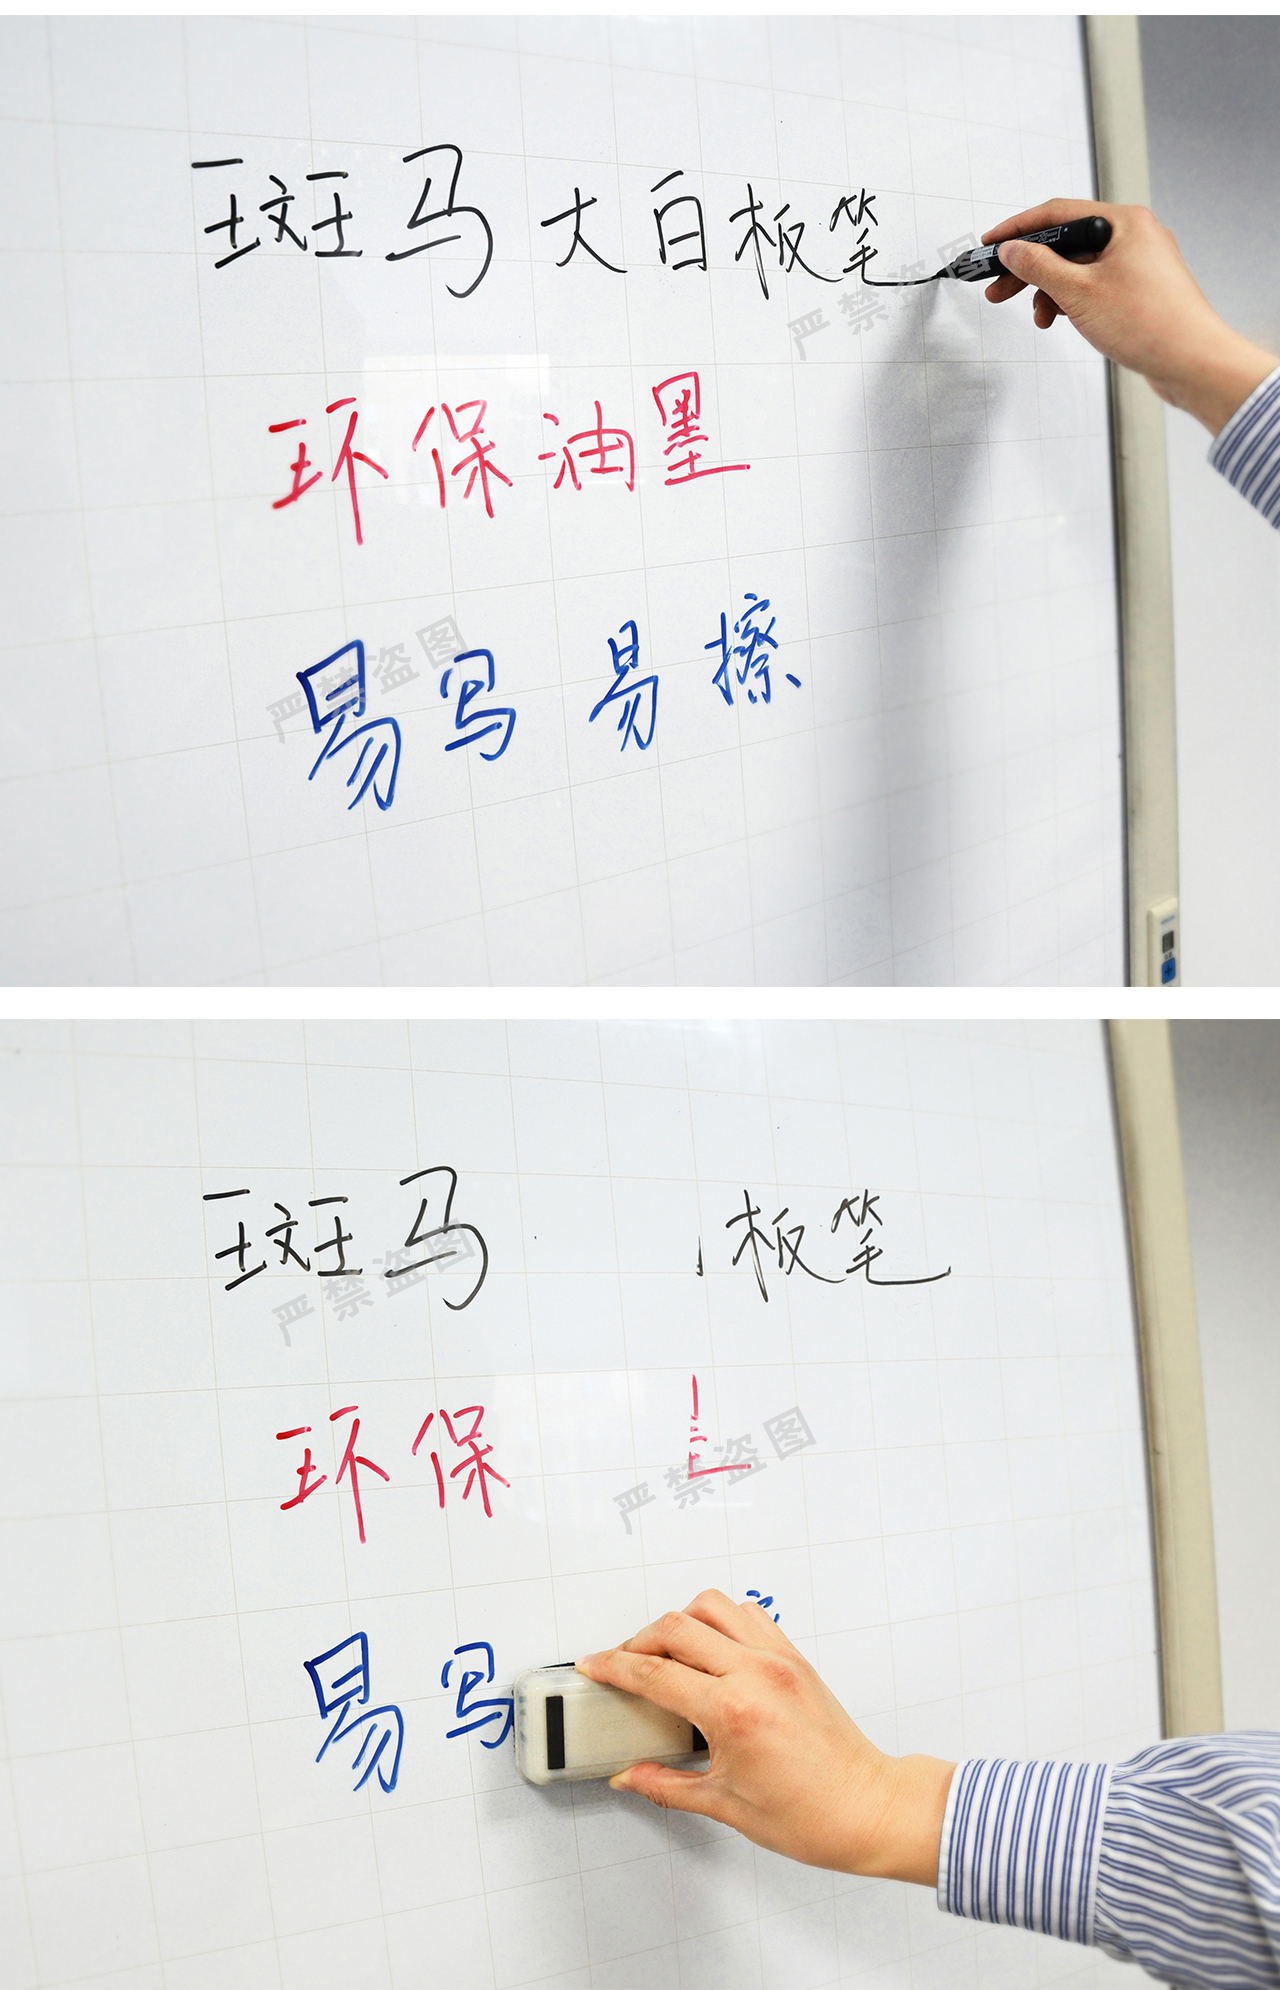 斑马大白板笔
严禁盗图
环保油墨
严禁盗图
易写易擦
斑马 板笔
严禁盗图
环保
严禁盗图
易写